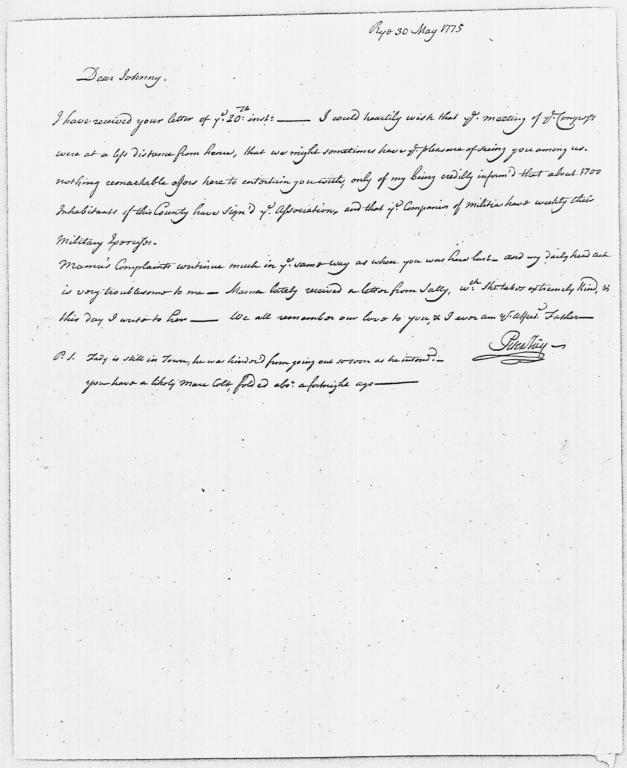 Rye 30 May 1775
Dear Johnny.
I have received your letter of yᵉ 20th inst: —— I could heartily wish that yᵉ meeting of yᵉ Congress
were at a less distance from hence, that we might sometimes have yᵉ pleasure of seeing you among us.
nothing remarkable offers here to entertain you with, only of my being credibly inform'd that about 1700
Inhabitants of this County have sign'd yᵉ Association, and that yᵉ Companies of militia have weekly their
Military Exercises.
Mama's Complaints continue much in yᵉ same way as when you was here last — and my daily head ach
is very troublesome to me — Mama lately received a letter from Sally, wch She takes extremely kind, &
this day I write to her —— We all remember our love to you, & I ever am yr affect. Father —
P. S. Fady is still in Town, he was hinder'd from going out so soon as he intend'd —
you have a likely Mare Colt, fol'ed abt. a fortnight ago ——